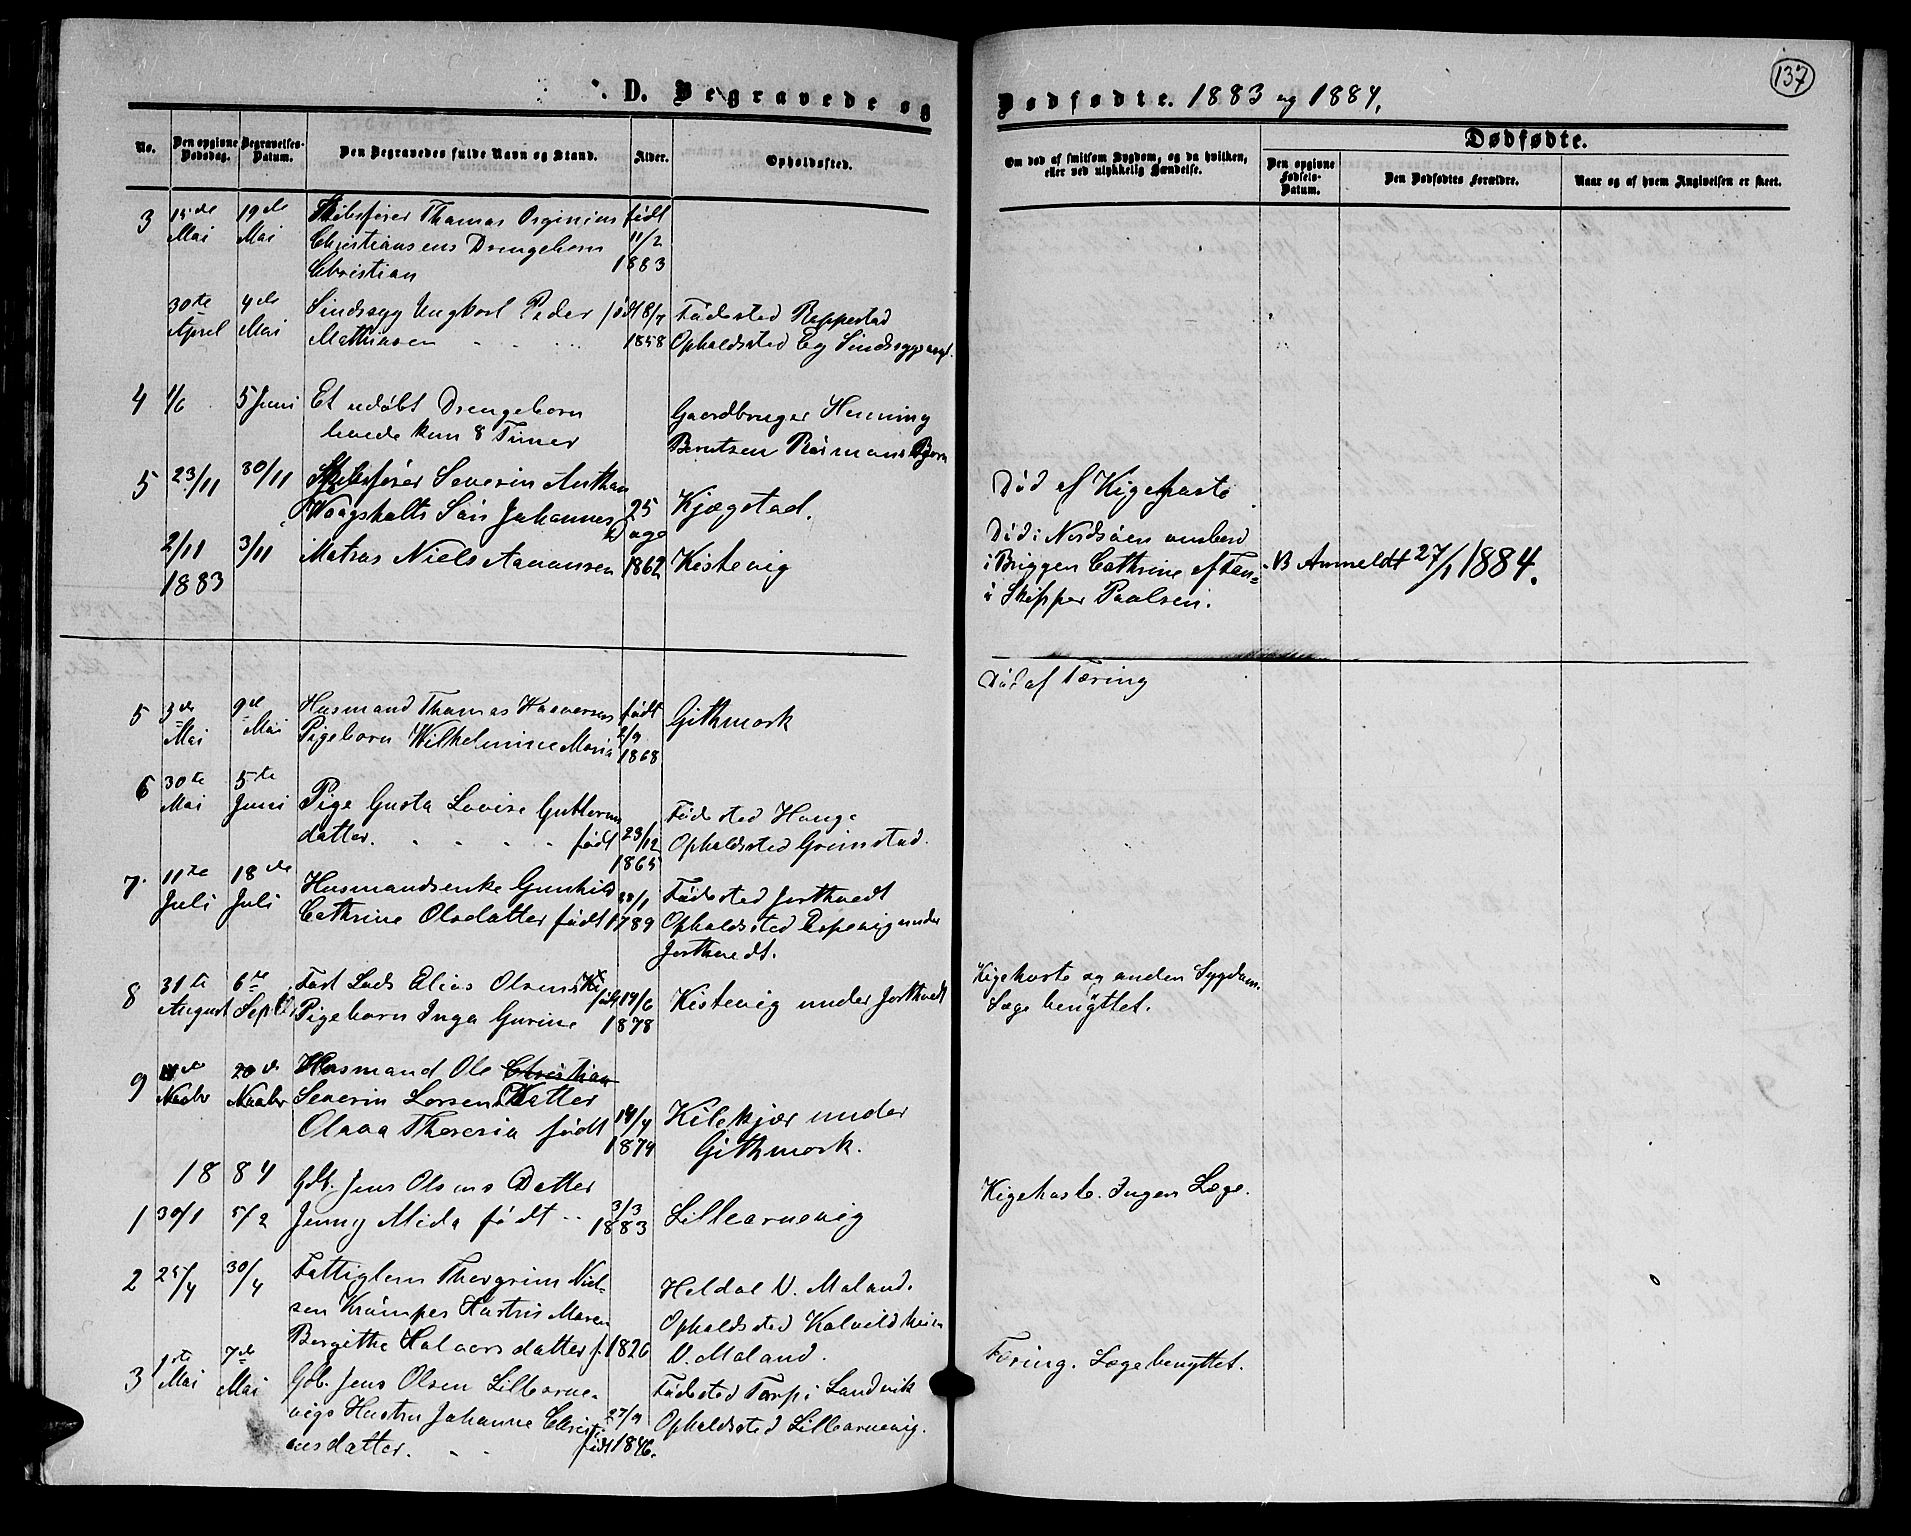 137
D. Begravede og Dødfødte. 1883 og 1884.
No.
Den opgivne Dødsdag.
Begravelses-Datum.
Den Begravedes fulde Navn og Stand.
Alder.
Opholdssted.
Om død af smitsom Sygdom, og da hvilken, eller ved ulykkelig Hændelse.
Dødfødte.
Den opgivne Fødsels-Datum.
Den Dødfødtes Forældre.
Naar og af hvem Angivelsen er skeet.
3 15de Mai 19de Mai Skibsfører Thomas født 11/2 1883
Christiansens Drengebarn
Christian
30te April 4de Mai Sindssyg Ungkarl Peder født 8/7 1858 Fødested Reppestad
Mathiasen Opholdssted Eg
4 1/6 5 Juni Et udøbt Drengebarn Gaardbruger Henning
levede kun 8 Timer Berntsen
5 23/11 30/11 Skibsfører Severin Anthon Død af Kigehoste
Søn Johannes 25 Dage Kjægstad.
2/11 1883 3/11 Matros Niels Aanonsen 1862 Kistevig
Død i Nordsøen ombord
i Briggen Cathrine af VB Anmeldt 27/1 1884.
Skipper Paulsen.
5 3de Mai 9de Mai Husmand Thomas født 2/9 1868 Githmark Død af Tæring
Pigebarn Wilhelmine Maria
6 30te Mai 5te Juni Pige Gusta Lovise Guttorms Fødested Hauge
datter. født 23/12 1865 Opholdssted Grimstad.
7. 11te Juli 18de Juli Husmandsenke Gunhild Fødested Jorthvedt
Cathrine Olsdatter født 1789 Opholdssted Espevig under
Jorthvedt.
8 31te August 6te Septbr Fast Lods Elias Olsens Kigehoste og anden Sygdom.
Pigebarn Inga Gurine født 19/6 1878 Kistevig under Jorthvedt Læge benyttet.
9 20de Novbr Husmand Ole Christian
Severin Larsens Datter
Olava Theresia født 14/4 1874 Kilekjær under
Githmark.
1884 Gdb. Jens Olsens Datter Kigehoste. Ingen Læge.
1 30/1 5/2 Jenny Alida født 3/3 1883 Lillearnevig
2 25/4 30/4 Fattiglem Thorgrim Niel-
sen Hustru Maren Heldal V. Moland.
Bergithe Halvorsdatter f. 1826 Opholdssted
V. Moland.
3 1ste Mai 7de Mai Gdb. Jens Olsen Lillearne- Fødested Torp i Landvik Tæring. Læge benyttet.
vigs Hustru Johanne Christi- Opholdssted Lillearnevig.
ansdatter. født 27/9 1846.